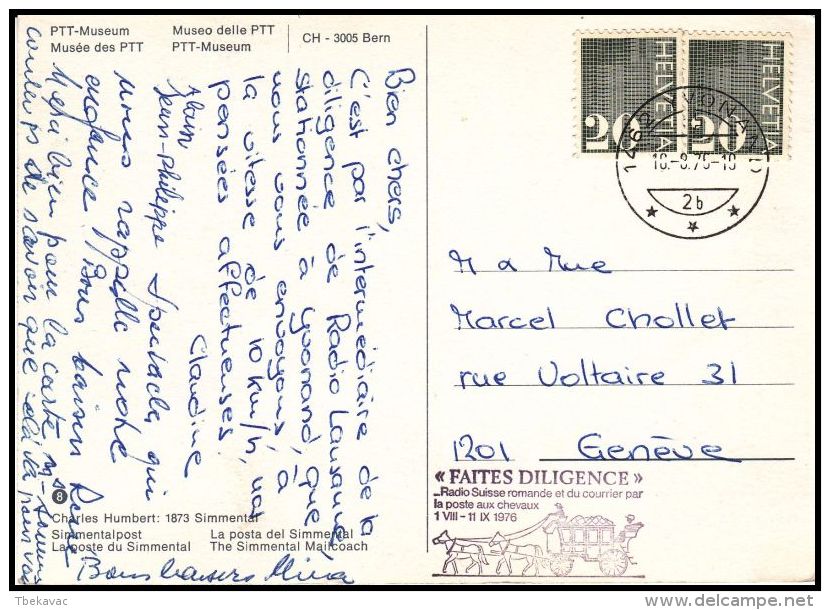 PTT-Museum
Musée des PTT
Museo delle PTT
PTT-Museum
CH - 3005 Bern
HELVETIA
20
HELVETIA
20
1462 YVONAND
2b
Bien chers,
C'est par l'intermédiaire de la
diligence de Radio Lausanne,
stationnée à Yvonand, que
nous vous envoyons, à
la vitesse de 10 km/h, nos
pensées affectueuses.
Claudine
Alain
Jean-Philippe
Spectacle qui
nous rappelle notre
enfance. Bons baisers
Merci bien pour la carte
de savoir que
Bons baisers Mina
M & Mme
Marcel Chollet
rue Voltaire 31
1201 Genève
« FAITES DILIGENCE »
Radio Suisse romande et du courrier par
la poste aux chevaux
1 VIII - 11 IX 1976
8
Charles Humbert: 1873 Simmental
Simmentalpost
La poste du Simmental
La posta del Simmental
The Simmental Mailcoach
Tbkavac
delcampe.net